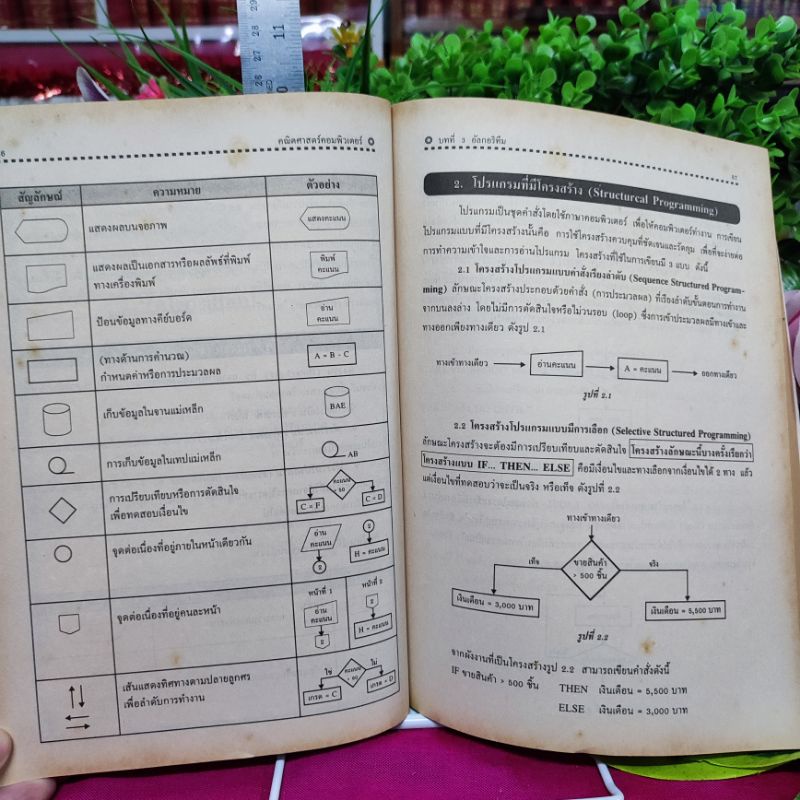 28
29
27
11
26
คณิตศาสตร์คอมพิวเตอร์
สัญลักษณ์ ความหมาย ตัวอย่าง
แสดงผลบนจอภาพ
แสดงคะแนน
แสดงผลเป็นเอกสารหรือผลลัพธ์ที่พิมพ์
ทางเครื่องพิมพ์
พิมพ์
คะแนน
ป้อนข้อมูลทางคีย์บอร์ด
อ่าน
คะแนน
(ทางด้านการคำนวณ)
กำหนดค่าหรือการประมวลผล
A = B - C
เก็บข้อมูลในจานแม่เหล็ก
BAE
การเก็บข้อมูลในเทปแม่เหล็ก
AB
การเปรียบเทียบหรือการตัดสินใจ
เพื่อทดสอบเงื่อนไข
คะแนน
C = F
C = D
จุดต่อเนื่องที่อยู่ภายในหน้าเดียวกัน
อ่าน
คะแนน
H = คะแนน
จุดต่อเนื่องที่อยู่คนละหน้า
หน้าที่ 1
หน้าที่ 2
อ่าน
คะแนน
H = คะแนน
เส้นแสดงทิศทางตามปลายลูกศร
เพื่อลำดับการทำงาน
ใช่
คะแนน
ไม่
เกรด = C
เกรด = D
บทที่ 3 อัลกอริทึม
2. โปรแกรมที่มีโครงสร้าง (Structurcal Programming)
โปรแกรมเป็นชุดคำสั่งโดยใช้ภาษาคอมพิวเตอร์ เพื่อให้คอมพิวเตอร์ทำงาน การเขียน
โปรแกรมแบบที่มีโครงสร้างนั้นคือ การใช้โครงสร้างควบคุมที่ชัดเจนและรัดกุม เพื่อที่จะง่ายต่อ
การทำความเข้าใจและการอ่านโปรแกรม โครงสร้างที่ใช้ในการเขียนมี 3 แบบ ดังนี้
2.1 โครงสร้างโปรแกรมแบบคำสั่งเรียงลำดับ (Sequence Structured Program-
ming) ลักษณะโครงสร้างประกอบด้วยคำสั่ง (การประมวลผล) ที่เรียงลำดับขั้นตอนการทำงาน
จากบนลงล่าง โดยไม่มีการตัดสินใจหรือไม่วนรอบ (loop) ซึ่งการเข้าประมวลผลมีทางเข้าและ
ทางออกเพียงทางเดียว ดังรูป 2.1
ทางเข้าทางเดียว อ่านคะแนน A = คะแนน ออกทางเดียว
รูปที่ 2.1
2.2 โครงสร้างโปรแกรมแบบมีการเลือก (Selective Structured Programming)
ลักษณะโครงสร้างจะต้องมีการเปรียบเทียบและตัดสินใจ โครงสร้างลักษณะนี้บางครั้งเรียกว่า
โครงสร้างแบบ IF... THEN... ELSE คือมีเงื่อนไขและทางเลือกจากเงื่อนไขได้ 2 ทาง แล้ว
แต่เงื่อนไขที่ทดสอบว่าจะเป็นจริง หรือเท็จ ดังรูปที่ 2.2
ทางเข้าทางเดียว
เท็จ
ขายสินค้า
> 500 ชิ้น
จริง
เงินเดือน = 3,000 บาท
เงินเดือน = 5,500 บาท
รูปที่ 2.2
จากผังงานที่เป็นโครงสร้างรูป 2.2 สามารถเขียนคำสั่งดังนี้
IF ขายสินค้า > 500 ชิ้น THEN เงินเดือน = 5,500 บาท
ELSE เงินเดือน = 3,000 บาท